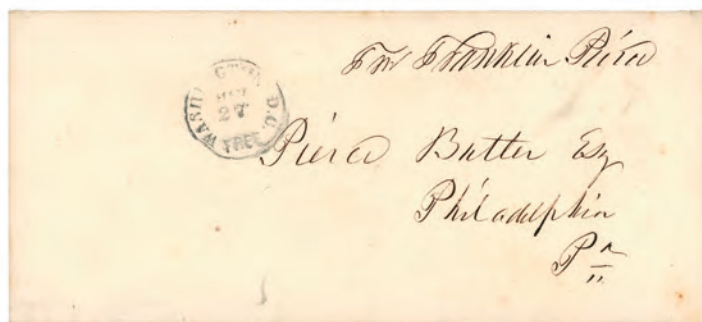 Franklin Pierce
WASHINGTON D.C.
27
FREE
Pierce Butler Esq
Philadelphia
Pa